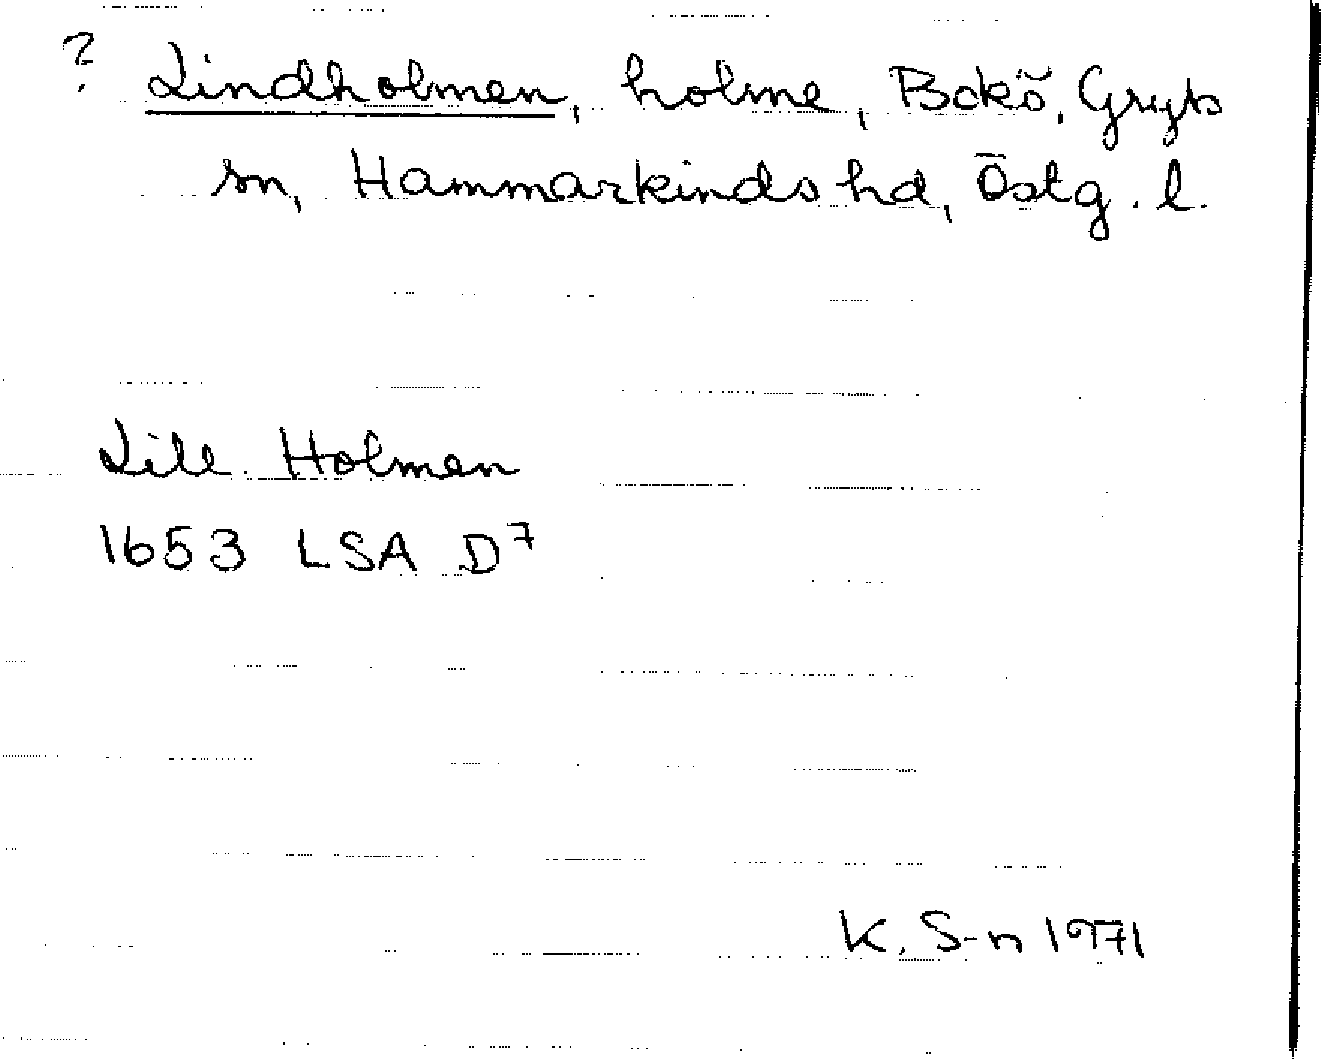 ? Lindholmen, holme, Bokö, Gryts
sn, Hammarkinds hd, Östg. l.
Lill Holmen
1653 LSA D7
K. S-n 1971